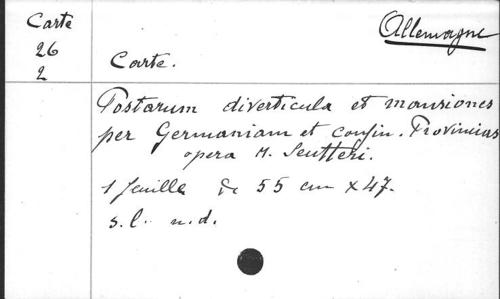 Carte
26
2
Allemagne
Carte.
Postarum diverticula et mansiones
per Germaniam et confin. Provincias
opera M. Seutteri.
1 feuille de 55 cm x 47.
s.l. n.d.